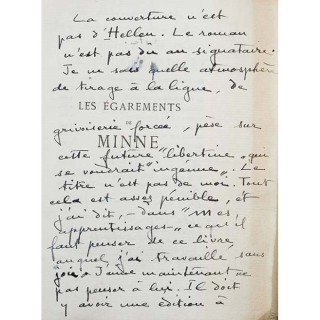 La couverture n'est
pas d'Helleu. Le roman
n'est pas dû au signataire.
Je ne sais quelle atmosphère
de tirage à la ligne, de
LES ÉGAREMENTS
DE
grivoiserie forcée, pèse sur
MINNE
cette future "libertine" qui
se voudrait "ingénue". Le
titre n'est pas de moi. Tout
cela est assez pénible, et
j'ai dit, – dans "mes
apprentissages" – ce qu'il
faut penser de ce livre
auquel j'ai travaillé sans
joie. J'aime maintenant ne
pas penser à lui. Il doit
y avoir une édition à